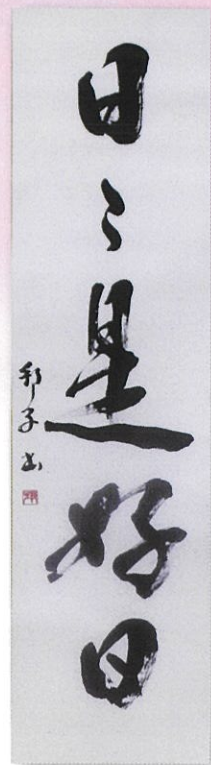 日々是好日
邦子書